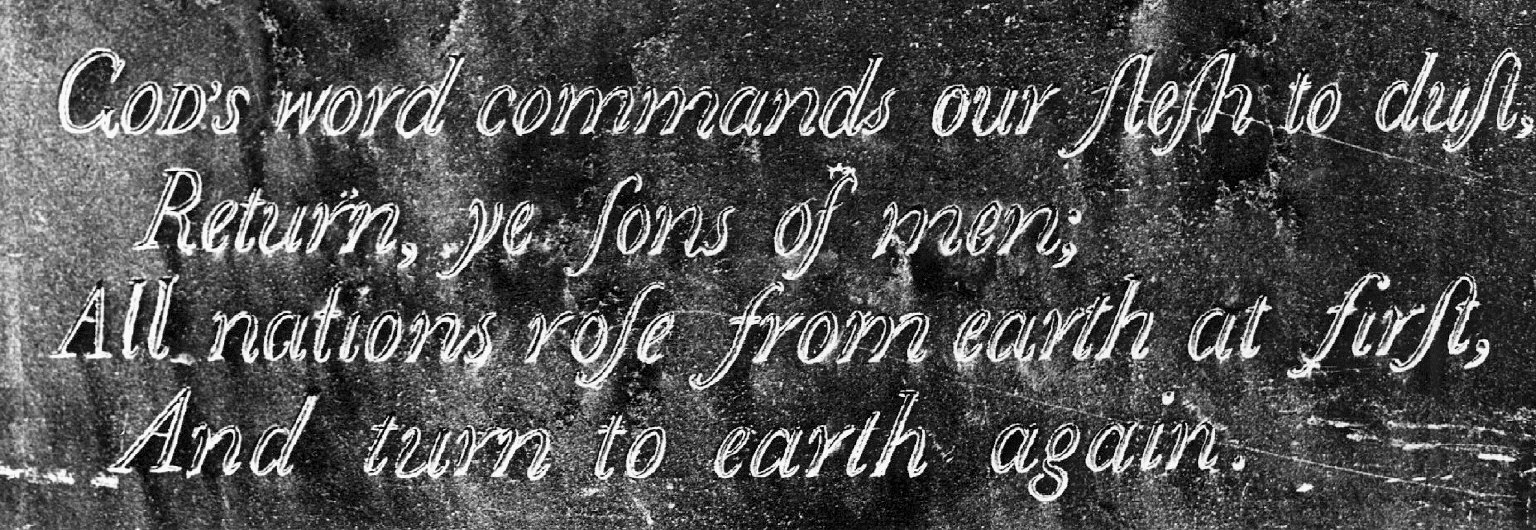 GOD's word commands our fleſh to duſt,
Return, ye ſons of men;
All nations roſe from earth at firſt,
And turn to earth again.